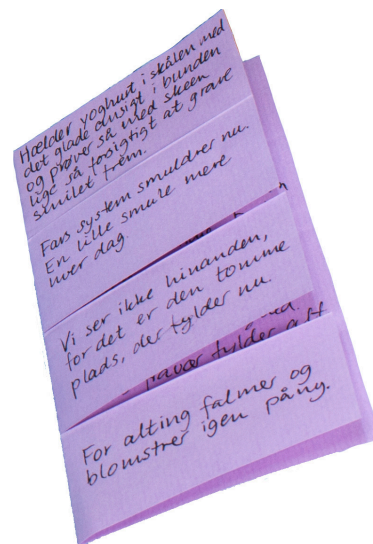 Hælder yoghurt i skålen med
det glade ansigt i bunden
og prøver så med skeen
lige så forsigtigt at grave
smilet frem.
Fars system smuldrer nu.
En lille smule mere
hver dag.
Vi ser ikke hinanden,
for det er den tomme
plads, der fylder nu.
fylder alt
For alting falmer og
blomstrer igen på ny.